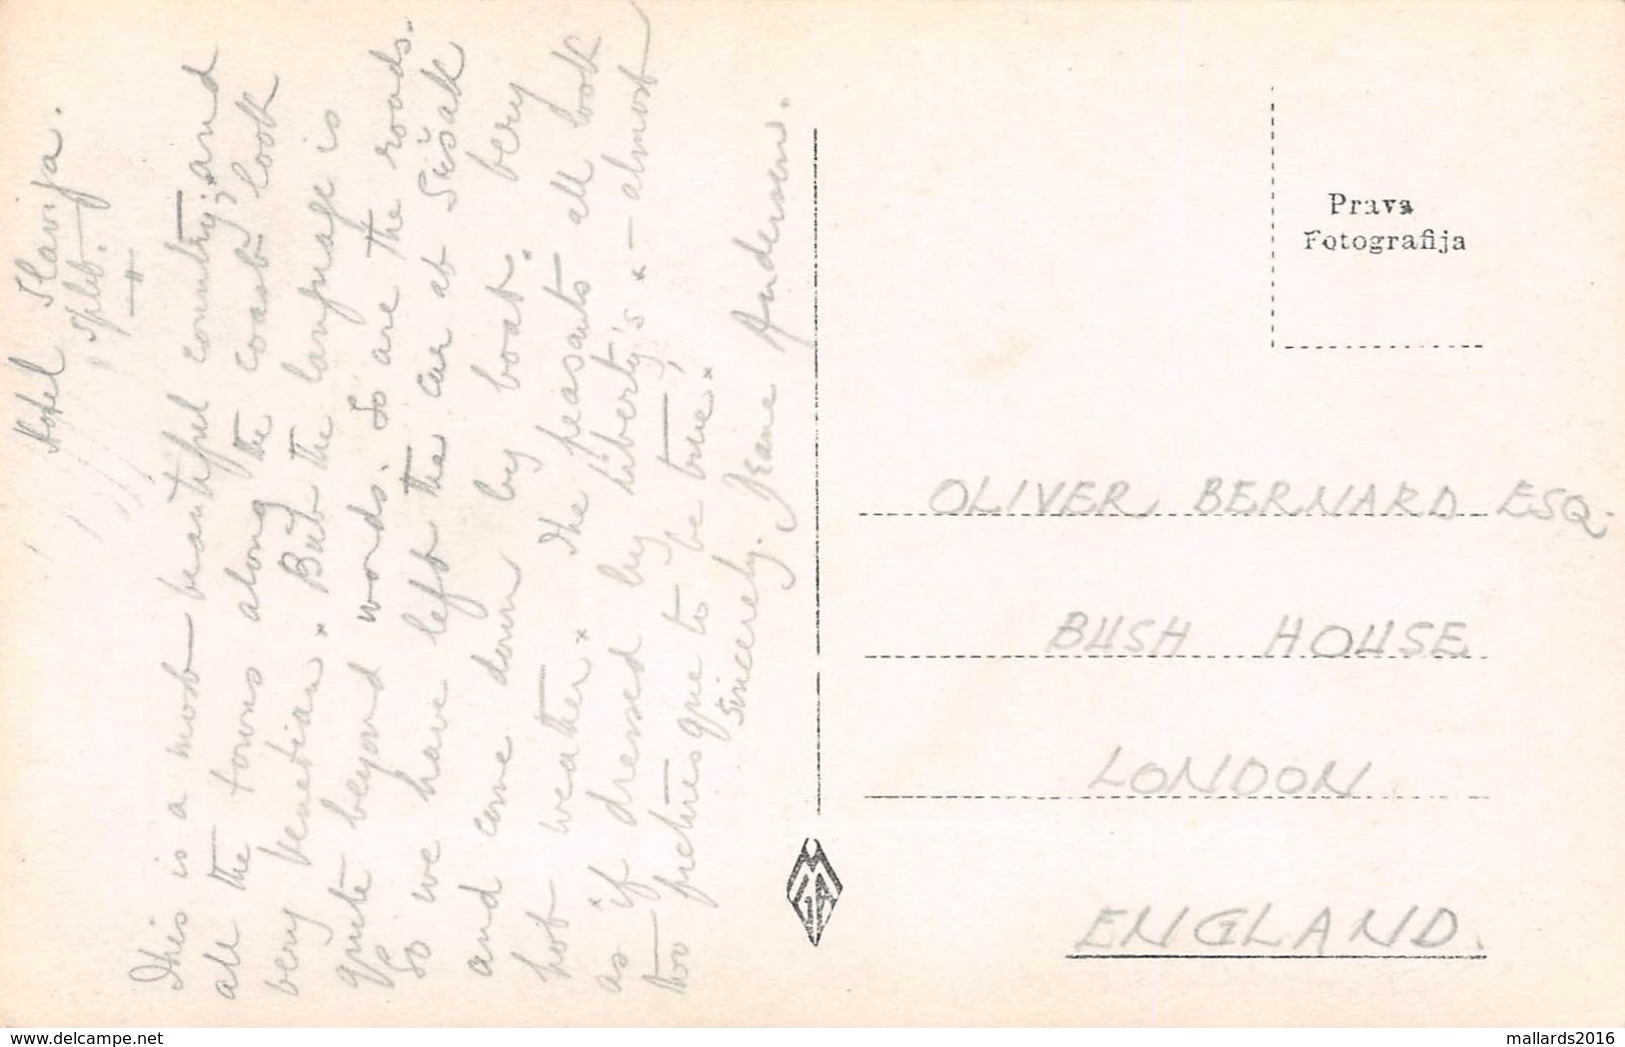 Hotel Slavija.
Split.
This is a most beautiful country; and
all the towns along the coast look
very venetian. But the language is
quite beyond words. So are the roads.
So we have left the car at Sušak
and come down by boat. Very
hot weather. The peasants all look
as if dressed by Liberty's - almost
too picturesque to be true.
Sincerely. Jeane Anderson.
Prava
Fotografija
OLIVER BERNARD ESQ.
BUSH HOUSE
LONDON
ENGLAND.
mallards2016